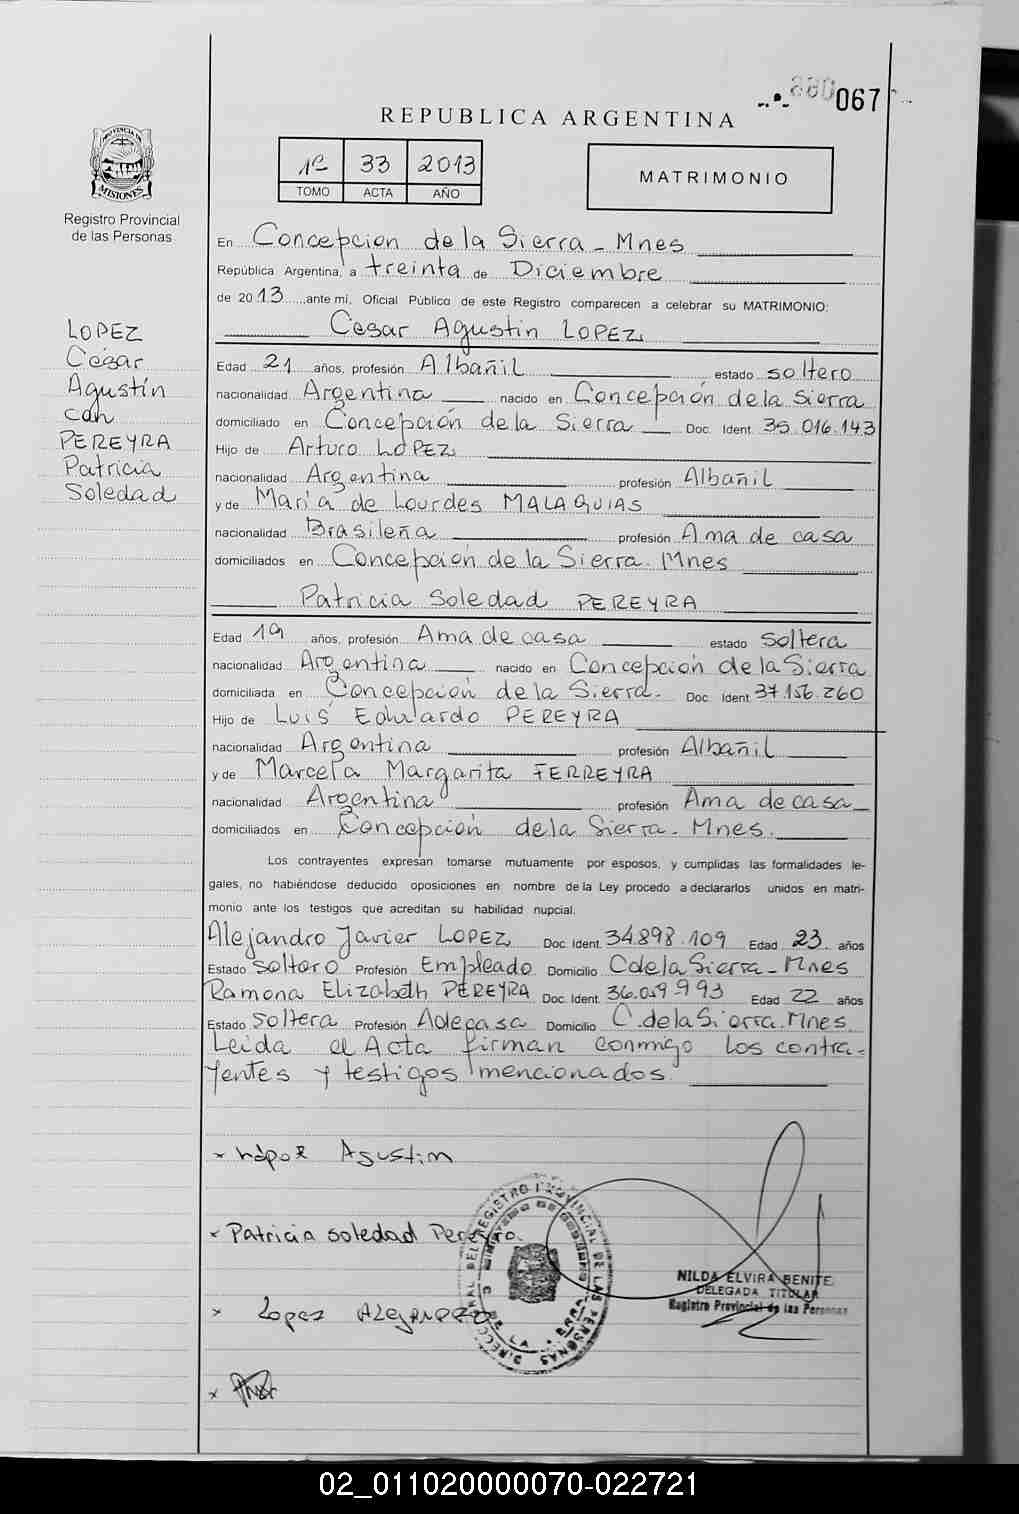 067
REPUBLICA ARGENTINA
1º 33 2013
TOMO ACTA AÑO
MATRIMONIO
PROVINCIA DE
MISIONES
Registro Provincial
de las Personas
LOPEZ
César
Agustín
con
PEREYRA
Patricia
Soledad
En Concepcion de la Sierra - Mnes
República Argentina, a treinta de Diciembre
de 2013, ante mí, Oficial Público de este Registro comparecen a celebrar su MATRIMONIO:
César Agustin LOPEZ
Edad 21 años, profesión Albañil estado soltero
nacionalidad Argentina nacido en Concepción de la Sierra
domiciliado en Concepción de la Sierra Doc. Ident. 35.016.143
Hijo de Arturo LOPEZ
nacionalidad Argentina profesión Albañil
y de María de Lourdes MALAQUIAS
nacionalidad Brasileña profesión Ama de casa
domiciliados en Concepción de la Sierra. Mnes
Patricia Soledad PEREYRA
Edad 19 años, profesión Ama de casa estado soltera
nacionalidad Argentina nacido en Concepción de la Sierra
domiciliada en Concepción de la Sierra. Doc. Ident. 37.156.260
Hijo de Luis Eduardo PEREYRA
nacionalidad Argentina profesión Albañil
y de Marcela Margarita FERREYRA
nacionalidad Argentina profesión Ama de casa
domiciliados en Concepción de la Sierra - Mnes.
Los contrayentes expresan tomarse mutuamente por esposos, y cumplidas las formalidades le-
gales, no habiéndose deducido oposiciones en nombre de la Ley procedo a declararlos unidos en matri-
monio ante los testigos que acreditan su habilidad nupcial.
Alejandro Javier LOPEZ Doc. Ident. 34.898.109 Edad 23 años
Estado soltero Profesión Empleado Domicilio C de la Sierra - Mnes
Ramona Elizabeth PEREYRA Doc. Ident. 36.059.993 Edad 22 años
Estado soltera Profesión A de casa Domicilio C. de la Sierra. Mnes
Leida el Acta firman conmigo los contra-
yentes y testigos mencionados.
x López Agustin
x Patricia soledad Pereyra.
x Lopez Alejandro
x
NILDA ELVIRA BENITE
DELEGADA TITULAR
Registro Provincial de las Personas
02_011020000070-022721